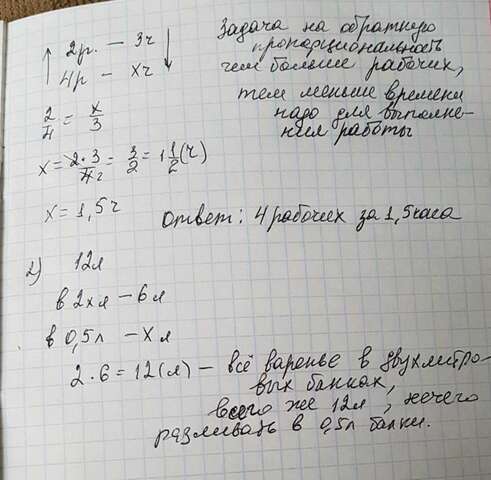 2р. — 3ч
4р — хч
2/4 = х/3
х = 2·3/4 2 = 3/2 = 1 1/2 (ч)
х = 1,5ч
Задача на обратную
пропорциональность
чем больше рабочих,
тем меньше времени
надо для выполне-
ния работы
Ответ: 4 рабочих за 1,5 часа
2) 12л
в 2хл — 6л
в 0,5л — хл
2·6 = 12(л) — всё варенье в двухлитро-
вых банках,
всего же 12л, нечего
разливать в 0,5л банки.